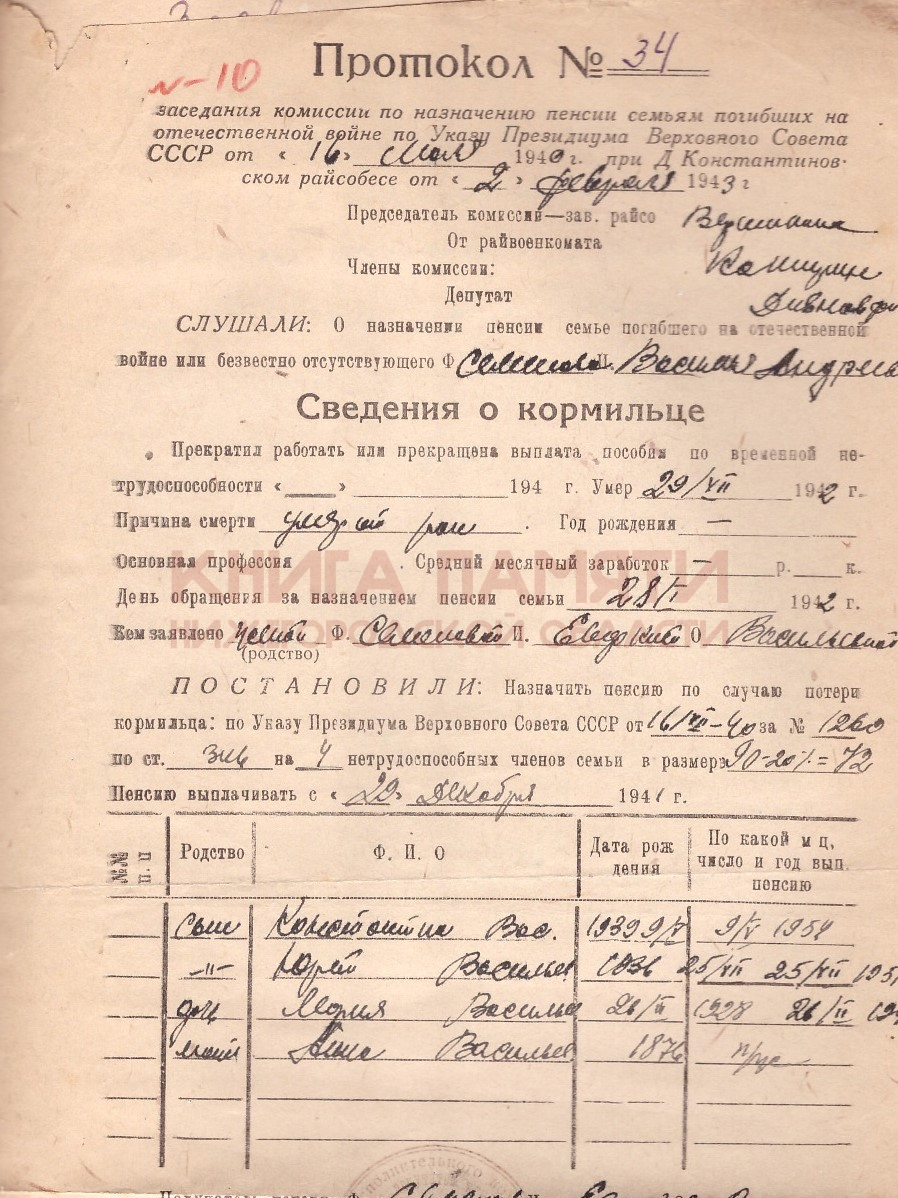 Протокол № 34
№-10
заседания комиссии по назначению пенсии семьям погибших на
отечественной войне по Указу Президиума Верховного Совета
СССР от « 16 » июля 1940 г. при Д Константинов-
ском райсобесе от « 2 » февраля 1943 г
Председатель комиссии—зав. райсо
От райвоенкомата
Члены комиссии:
Депутат
СЛУШАЛИ: О назначении пенсии семье погибшего на отечественной
войне или безвестно отсутствующего Ф. И. Василья Андрея
Сведения о кормильце
Прекратил работать или прекращена выплата пособия по временной не-
трудоспособности « ___ » ______ 194 г. Умер 29/XII 1942 г.
Причина смерти умер от ран . Год рождения —
Основная профессия . Средний месячный заработок — р. __ к.
КНИГА ПАМЯТИ
День обращения за назначением пенсии семьи 28/I 1942 г.
НИЖЕГОРОДСКОЙ ОБЛАСТИ
Кем заявлено женой Ф. Семеновой И. Евдокией О Васильевной
(родство)
ПОСТАНОВИЛИ: Назначить пенсию по случаю потери
кормильца: по Указу Президиума Верховного Совета СССР от 16/VII-40 за № 1269
по ст. на 4 нетрудоспособных членов семьи в размере 90-20%=72
Пенсию выплачивать с « 29 » декабря 1941 г.
№№ п. п
Родство
Ф. И. О
Дата рож дения
По какой м ц, число и год вып. пенсию
сын Константин Вас. 1939 9/V 9/V 1954
-„- Юрий Василье 1936 25/VII 25/VII 195
дочь Мария Василье 26/III 1928 26/III 19
мать Анна Васильев 1876
полнительного